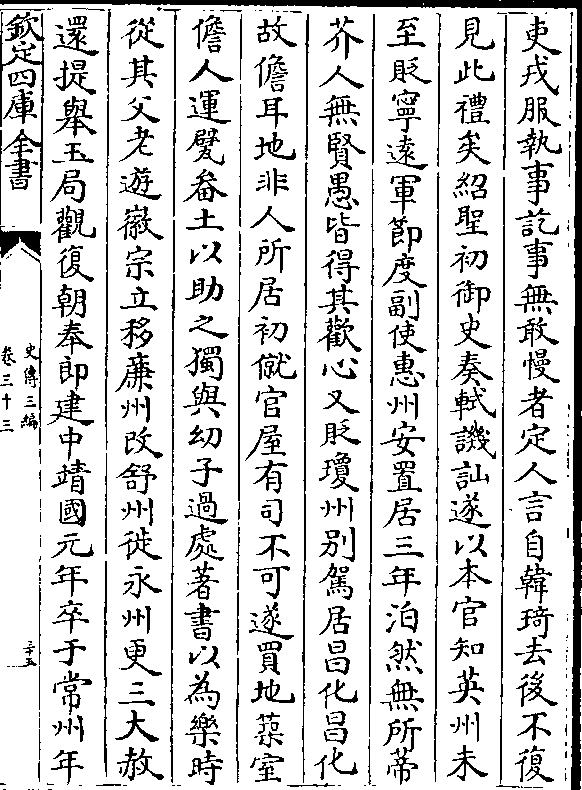 吏戎服執事訖事無敢慢者定人言自韓琦去後不復
見此禮矣紹聖初御史奏軾譏訕遂以本官知英州未
至貶寧遠軍節度副使惠州安置居三年泊然無所蒂
芥人無賢愚皆得其歡心又貶瓊州別駕居昌化昌化
故儋耳地非人所居初僦官屋有司不可遂買地築室
儋人運甓畚土以助之獨與幼子過處著書以為樂時
從其父老遊徽宗立移廉州改舒州徙永州更三大赦
還提舉玉局觀復朝奉郎建中靖國元年卒于常州年
欽定四庫全書
史傳三編
卷三十三
三十五